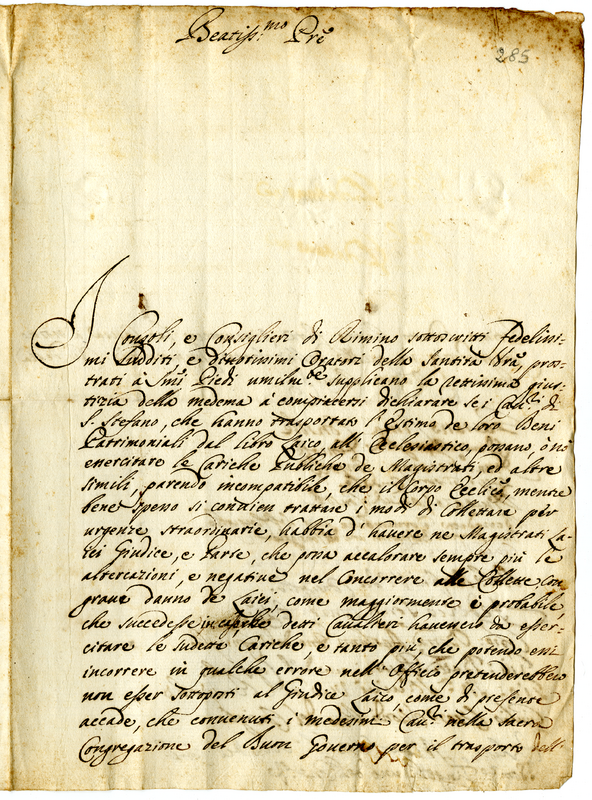 Beatiss:mo Pre
285
I Consoli, e Consiglieri di Rimino sottoscritti fedelissi-
mi sudditi e Oratori della Santità Vra pros-
trati à Smi Piedi umilm:te supplicano la rettissima gius-
tizia della medema à compiacersi dichiarare se i Cau:ri di
S. Stefano, che hanno trasportato l'Estimo de loro Beni
Patrimoniali dal libro Laico all'Ecclesiastico, possano, ò nò
esercitare le Cariche Publiche de Magistrati, ed altre
simili, parendo incompatibile, che il Corpo Ecclico, mentre
bene spesso si convien trattare i modi di Collettare per
urgenze straordinarie, habbia d'havere ne Magistrati La-
ici Giudice, e Parte, che possa accalorare sempre più le
altercazioni, e negative nel Concorrere alle Collette con
grave danno de Laici, come maggiormente è probabile,
che succedesse detti Cavalieri havendo da eser-
citare le sudette Cariche, e tanto più, che potendo essi
incorrere in qualche errore nell'Officio pretenderebbero
non esser sottoposti al Giudice Laico, come di presente
accade, che convenuti i medesimi Cau:ri nella Sacra
Congregazione del Buon Governo per il trasporto dell'